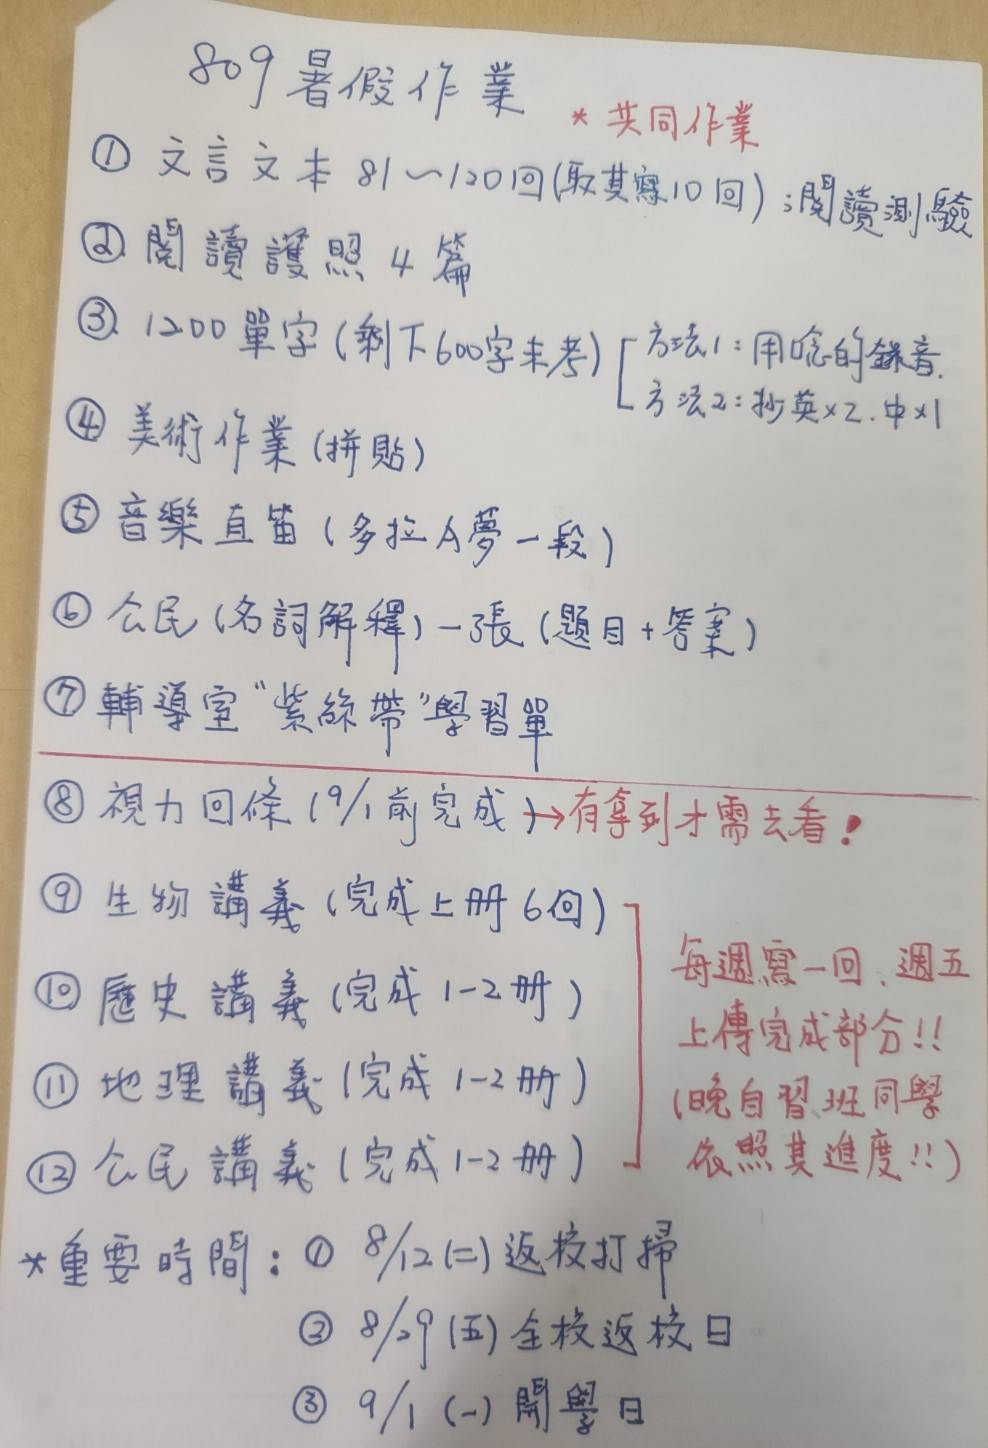 809暑假作業
*共同作業
① 文言文本 81~120回(取其寫10回);閱讀測驗
② 閱讀護照 4 篇
③ 1200單字(剩下600字未考)
方法1:用唸的錄音.
方法2:抄英x2.中x1
④ 美術作業(拼貼)
⑤ 音樂直笛(多拉A夢一段)
⑥ 公民(名詞解釋)一張(題目+答案)
⑦ 輔導室“紫絲帶”學習單
⑧ 視力回條(9/1前完成)→有拿到才需去看!
⑨ 生物講義(完成上册6回)
⑩ 歷史講義(完成1-2册)
⑪ 地理講義(完成1-2册)
⑫ 公民講義(完成1-2册)
每週寫一回、週五
上傳完成部分!!
(晚自習班同學
依照其進度!!)
*重要時間:① 8/12(二)返校打掃
② 8/29(五)全校返校日
③ 9/1(一)開學日